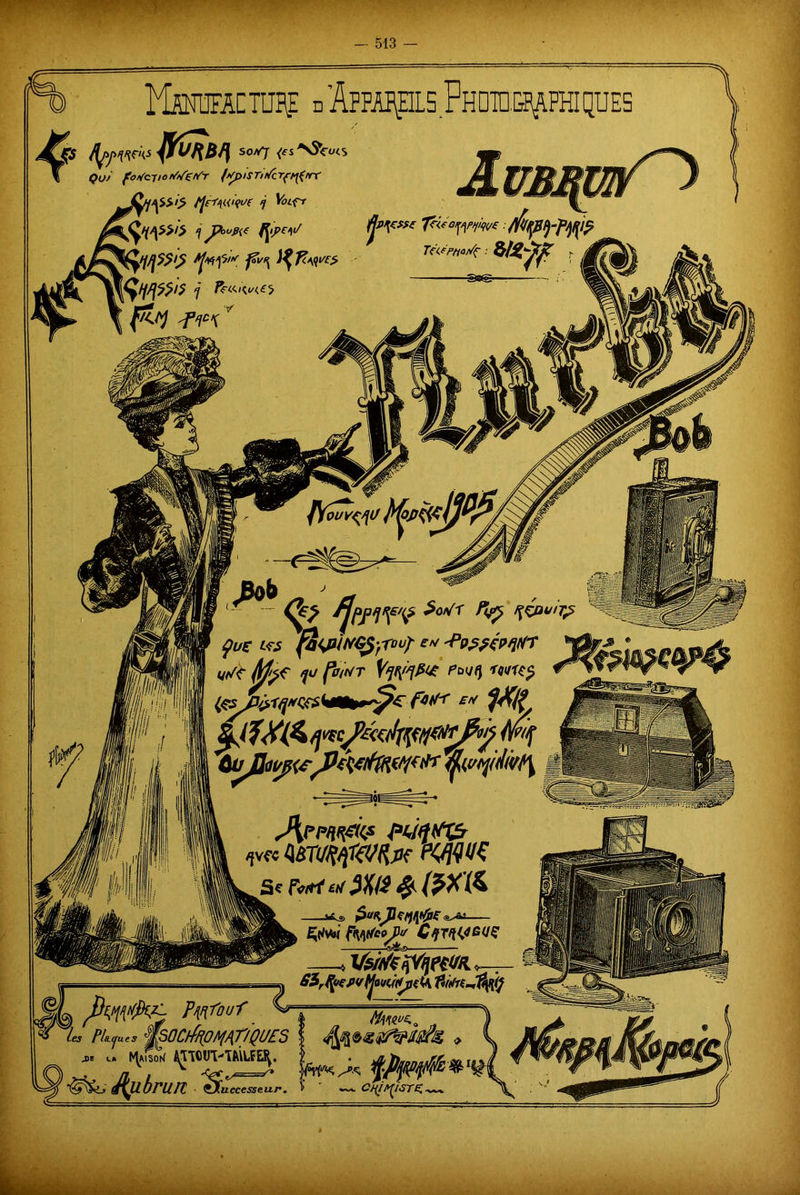 — 513 —
MANUFACTURE D'APPAREILS PHOTOGRAPHIQUES
Les Appareils NURBA sont les Seuls
Qui fonctionnent Indistinctement
Châssis Métallique à Volet
Châssis à Double Rideau
Châssis Magasin pour 12 Plaques
Châssis à Pellicules
Film Pack
AUBRUN
Adresse Télégraphique : Nurba-Paris
Téléphone : 812-
Nurba
Nouveau Modèle 1905
Bob
Bob
Ces Appareils Sont Plus réduits
que les en Possédant
une au Point Variable Pour toutes
les Distances Se font en
13X18 avec Décentrement Bois Noir
ou Double Décentrement Aluminium
Plésioscopes
101
Appareils Pliants
avec OBTURATEUR DE PLAQUE
Se font en 9X12 & 13X18
Sur Demande
Envoi Franco Du CATALOGUE
Usine à Vapeur
63, Rue du Moulin de la Pointe_Paris
Demandez Partout
Les Plaques ISOCHROMATIQUES
DE LA MAISON ATTOUT-TAILFER.
Aubrun Successeur.
Marque
CHIMISTE